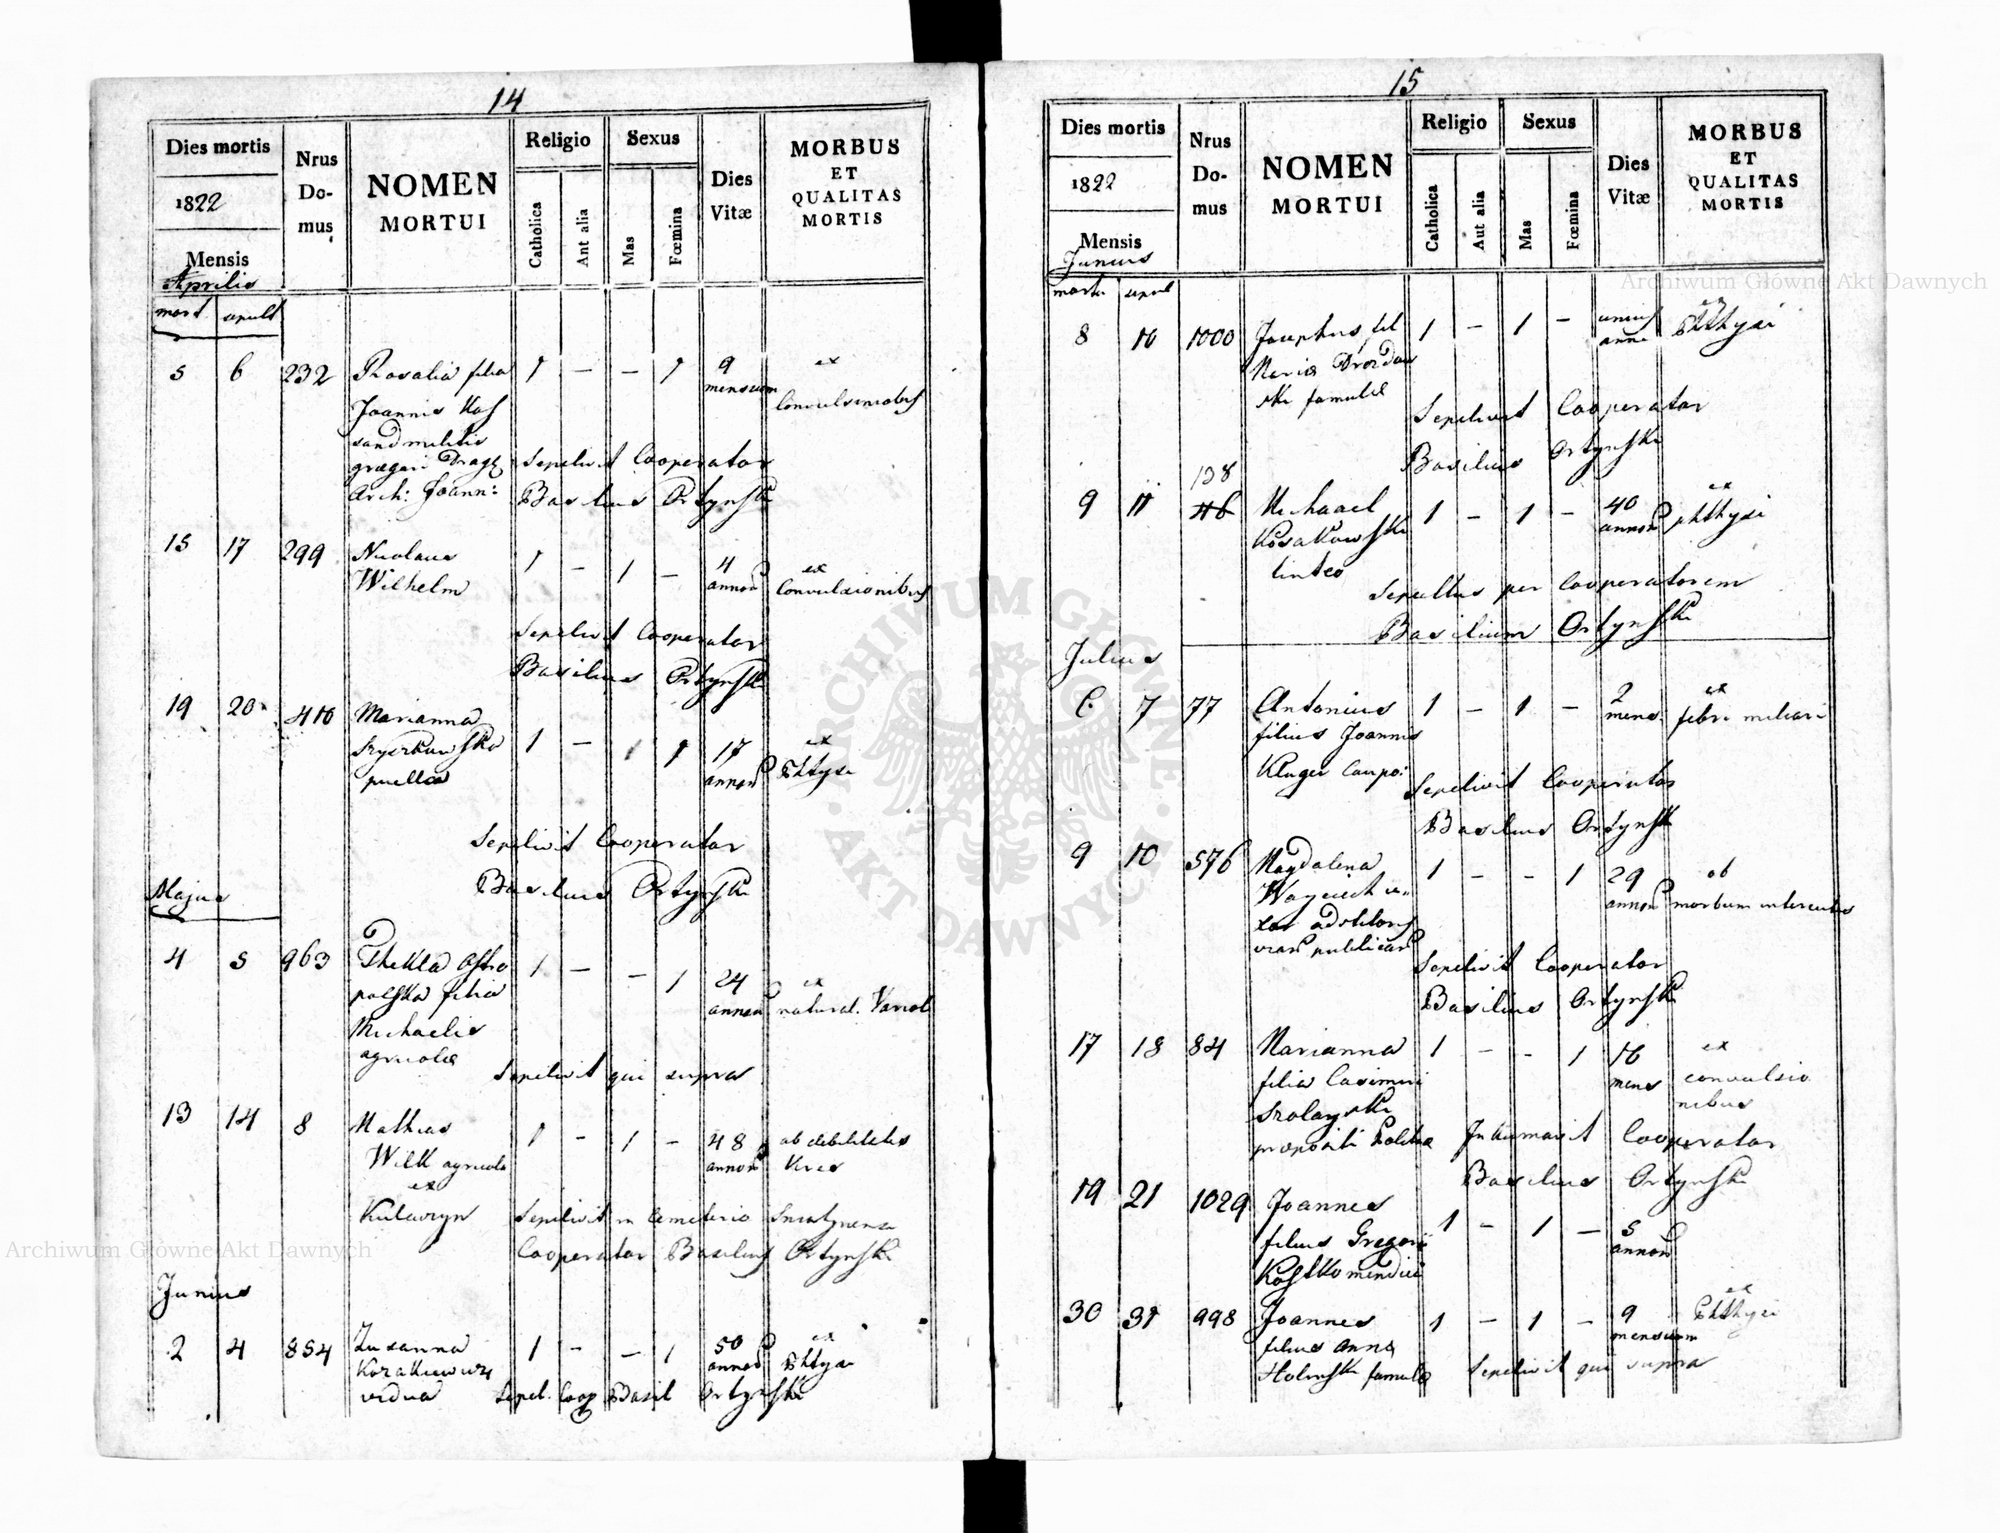 14
Dies mortis
1822
Mensis
Aprilis
mort. sepult
Nrus
Do-
mus
NOMEN
MORTUI
Religio
Catholica
Aut alia
Sexus
Mas
Fœmina
Dies
Vitæ
MORBUS
ET
QUALITAS
MORTIS
5 6 232 Rosalia filia 1 – – 1 9 ex
mensium Convulsionibus
Joannis
militis
gregari Drag:
Arch: Joann:
Sepelivit Cooperator
Basilius Ortynski
15 17 299 Nicolaus 1 – 1 – 4 ex
Wilhelm annor Convulsionibus
Sepelivit Cooperator
Basilius Ortynski
19 20 410 Marianna 1 – 1 17 ex
annor Phtysi
puella
Sepelivit Cooperator
Basilius Ortynski
Majus
4 5 963 Thekla Ostro 1 – – 1 24 ex
polska filia annor natural. Variol
Michaelis
agricolæ
Sepelivit qui supra
13 14 8 Mathias 1 – 1 – 48 ab debilitatis
Wilk agricola annor
ex
Kulawzyn Sepelivit in Cemeterio Sniatynensi
Cooperator Basilius Ortynski
Junius
2 4 854 Zusanna 1 – – 1 50 ex
annor Phtysi
vidua Sepel. Coop Basil Ortynski
15
Dies mortis
1822
Mensis
Junius
mort. sepul
Nrus
Do-
mus
NOMEN
MORTUI
Religio
Catholica
Aut alia
Sexus
Mas
Fœmina
Dies
Vitæ
MORBUS
ET
QUALITAS
MORTIS
8 10 1000 Josephus fil 1 – 1 – unius ex
anni Phthysi
Mariæ Drozdow
ski famulæ
Sepelivit Cooperator
Basilius Ortynski
138
9 11 116 Michaael 1 – 1 – 40 ex
Kosakowski annor phthysi
linteo
Sepultus per Cooperatorem
Basilium Ortynski
Julius
6 7 77 Antonius 1 – 1 – 2 ex
filius Joannis mens. febri miliari
Kluger Caupo:
Sepelivit Cooperator
Basilius Ortynski
9 10 576 Magdalena 1 – – 1 29 ob
Woyciech u= annor morbum intercutis
xor
publicar
Sepelivit Cooperator
Basilius Ortynski
17 18 84 Marianna 1 – – 1 16 ex
filia Casimiri mens convulsio
nibus
Szolayski
propositi Inhumavit Cooperator
Basilius Ortynski
19 21 1029 Joannes 1 – 1 – 5
filius Gregorii annor
Kostko mendici
30 31 998 Joannes 1 – 1 – 9 ex
mensium Phthysi
filius Annæ
Holinski famulæ Sepelivit qui supra
Archiwum Główne Akt Dawnych
Archiwum Główne Akt Dawnych
ARCHIWUM GŁÓWNE · AKT DAWNYCH ·